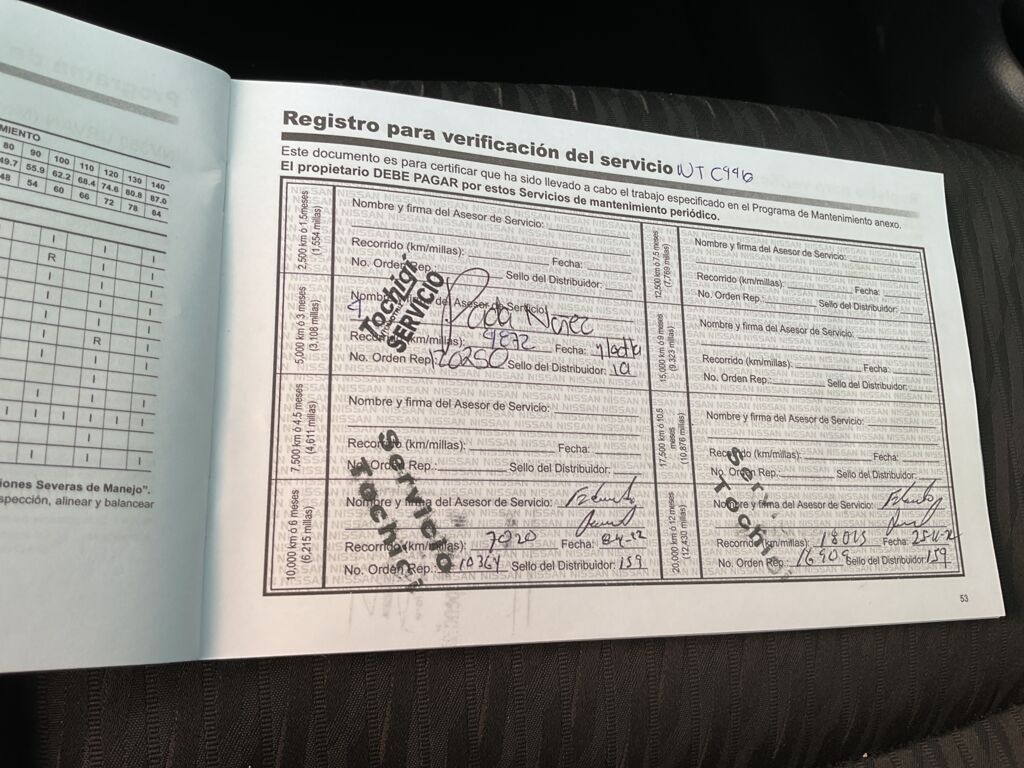 MIENTO
80 90 100 110 120 130 140
49.7 55.9 62.2 68.4 74.6 80.8 87.0
48 54 60 66 72 78 84
I I
R I
I I
I
R
I
I
I
iones Severas de Manejo".
spección, alinear y balancear
Registro para verificación del servicio
Este documento es para certificar que ha sido llevado a cabo el trabajo especificado en el Programa de Mantenimiento anexo.
El propietario DEBE PAGAR por estos Servicios de mantenimiento periódico.
2,500 km ó 1.5 meses
(1,554 millas)
Nombre y firma del Asesor de Servicio:
Recorrido (km/millas): Fecha:
No. Orden Rep. Sello del Distribuidor:
5,000 km ó 3 meses
(3,108 millas)
Tochigi
SERVICIO
Nombre y firma del Asesor de Servicio:
Recorrido (km/millas): 9872 Fecha:
No. Orden Rep.: 20250 Sello del Distribuidor:
7,500 km ó 4.5 meses
(4,611 millas)
Nombre y firma del Asesor de Servicio:
Recorrido (km/millas): Fecha:
No. Orden Rep.: Sello del Distribuidor:
10,000 km ó 6 meses
(6,215 millas)
Servicio
Tochigi
Nombre y firma del Asesor de Servicio:
Recorrido (km/millas): 7020 Fecha:
No. Orden Rep.: 10364 Sello del Distribuidor: 159
12,500 km ó 7.5 meses
(7,769 millas)
Nombre y firma del Asesor de Servicio:
Recorrido (km/millas): Fecha:
No. Orden Rep.: Sello del Distribuidor:
15,000 km ó 9 meses
(9,323 millas)
Nombre y firma del Asesor de Servicio:
Recorrido (km/millas): Fecha:
No. Orden Rep.: Sello del Distribuidor:
17,500 km ó 10.5 meses
(10,876 millas)
Nombre y firma del Asesor de Servicio:
Recorrido (km/millas): Fecha:
No. Orden Rep. Sello del Distribuidor:
20,000 km ó 12 meses
(12,430 millas)
Nombre y firma del Asesor de Servicio:
Recorrido (km/millas): Fecha:
No. Orden Rep.: 16909 Sello del Distribuidor: 159
53